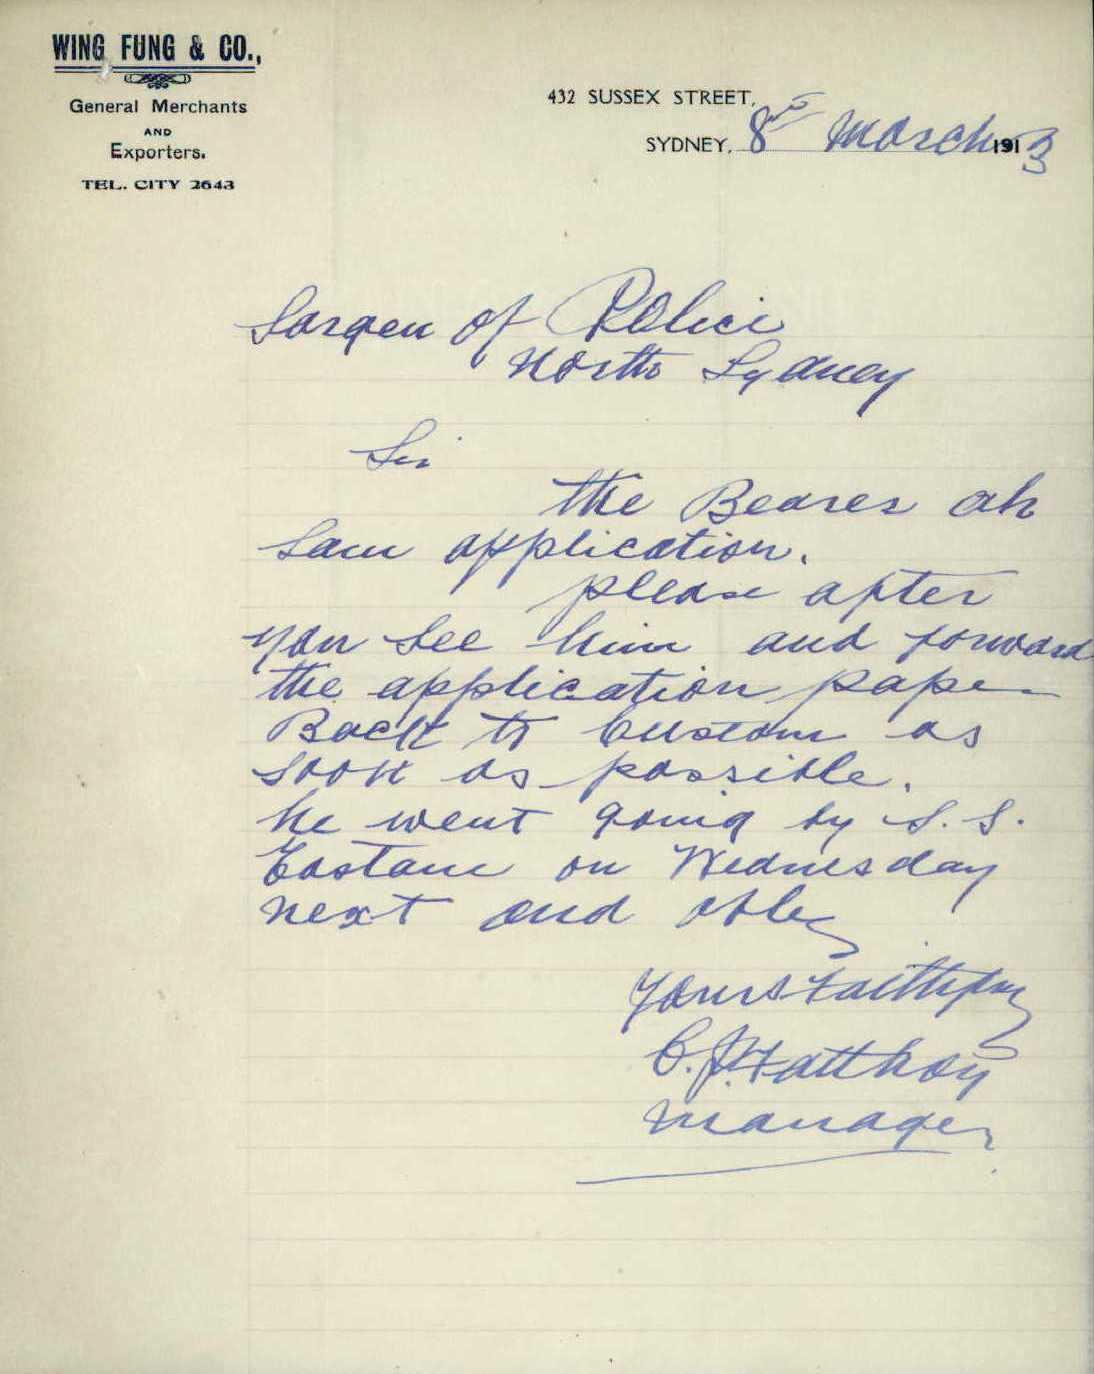 WING FUNG & CO.,
General Merchants
AND
Exporters.
TEL. CITY 2643
432 SUSSEX STREET,
SYDNEY, 8th March 1913
Sargen of Police
North Sydney
Sir
the Bearer ah
Sam application.
please after
you see him and forward
the application paper
Back to Custom as
soon as possible.
he went going by S. S.
Eastam on Wednesday
next and oblg
Yours Faithfuy
C. J. Fatt hoy
manager